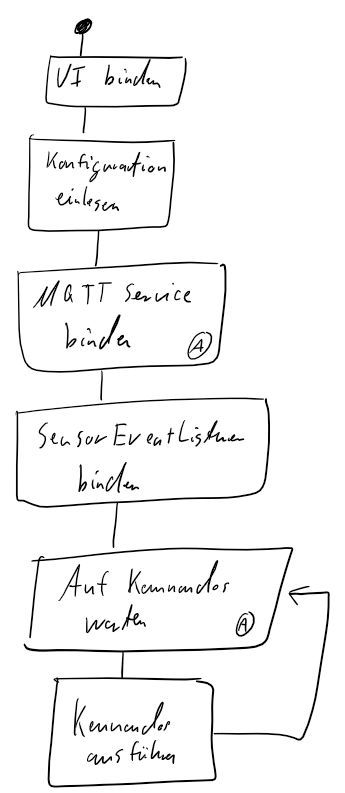 UI binden
Konfiguration
einlesen
MQTT Service
binden
A
SensorEventListener
binden
Auf Kommandos
warten
A
Kommandos
ausführen